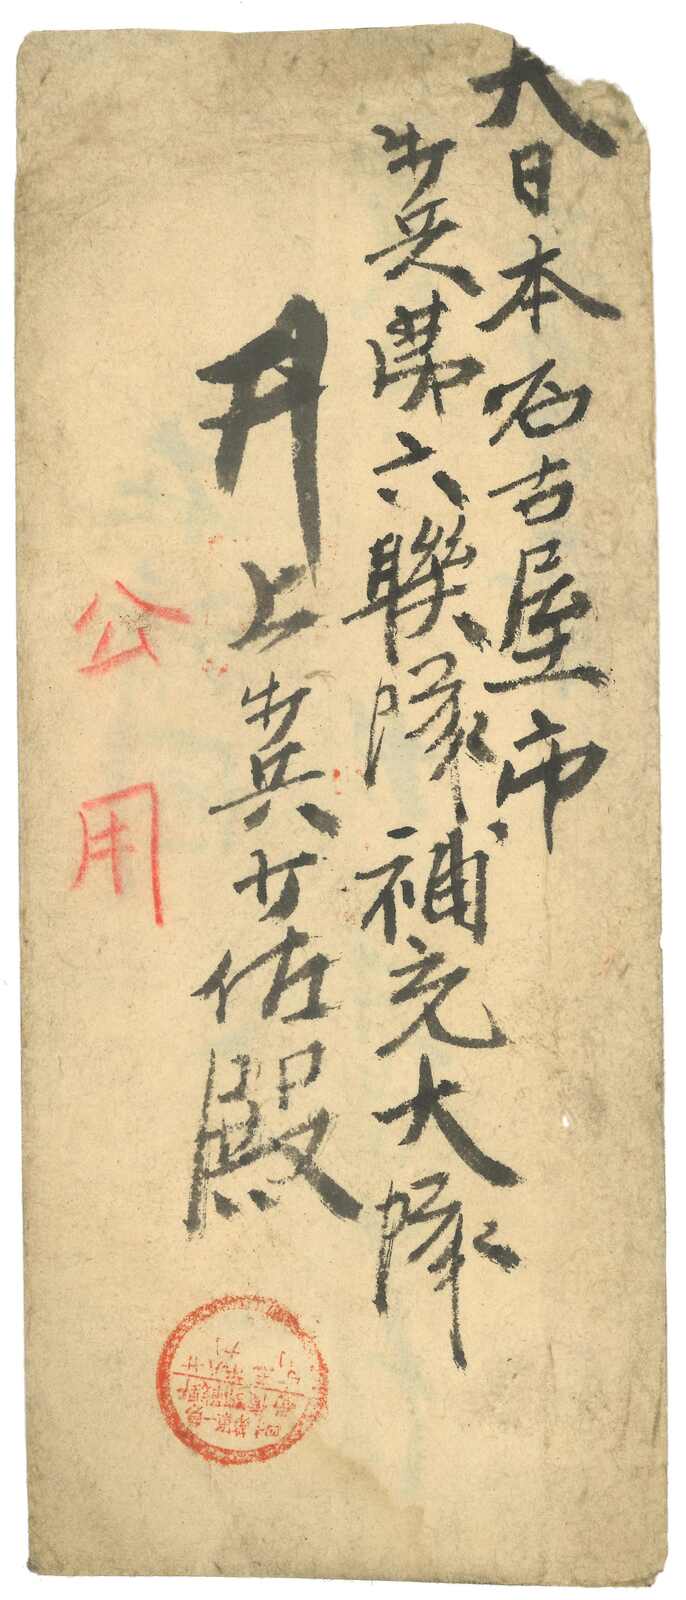 大日本名古屋市
歩兵第六聯隊補充大隊
井上歩兵少佐殿
公用